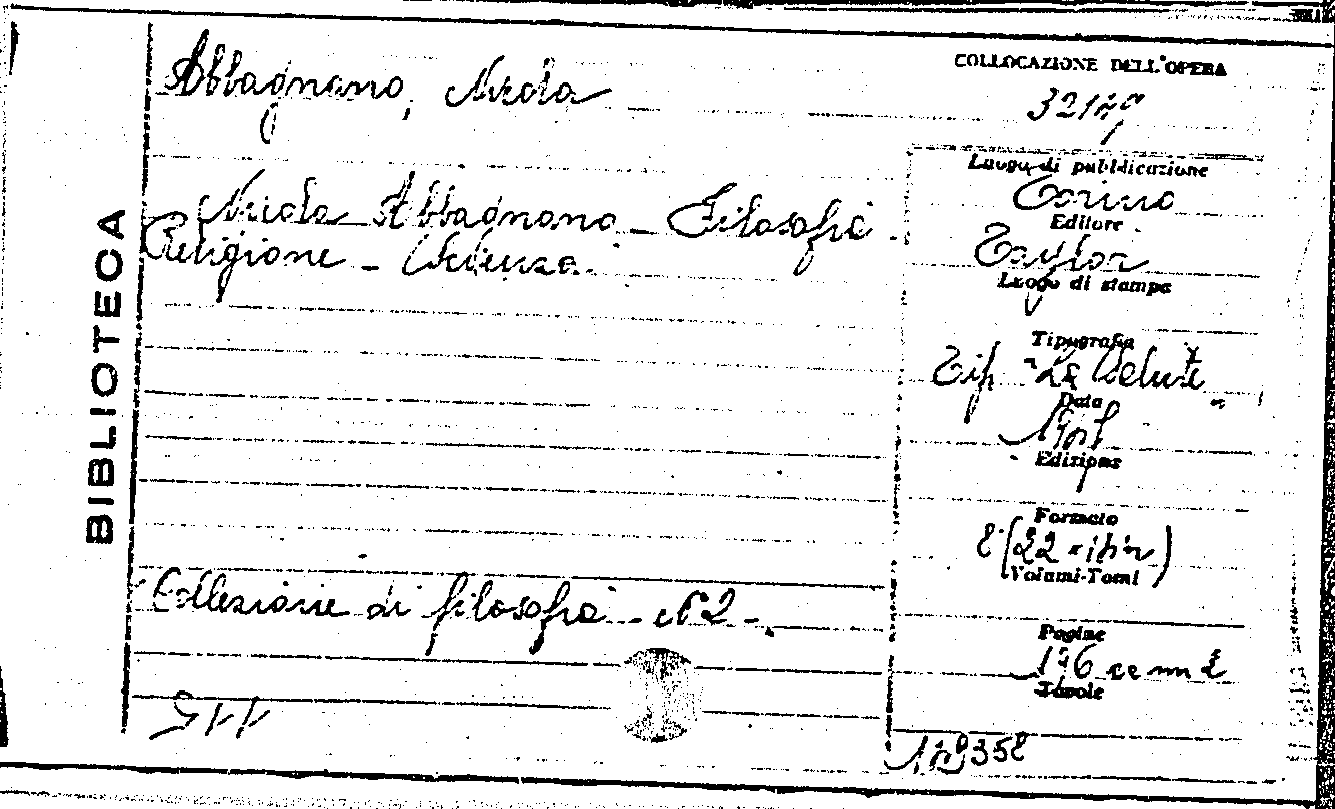 BIBLIOTECA
Abbagnano, Nicola
Nicola Abbagnano - Filosofia
Religione - Scienza.
Collezione di filosofia - N 2 -
COLLOCAZIONE DELL'OPERA
Luogo di pubblicazione
Torino
Editore
Taylor
Luogo di stampa
Tipografia
Tip. "La Salute
Data
Edizione
Formato
8°(22
Volumi-Tomi
Pagine
Tavole